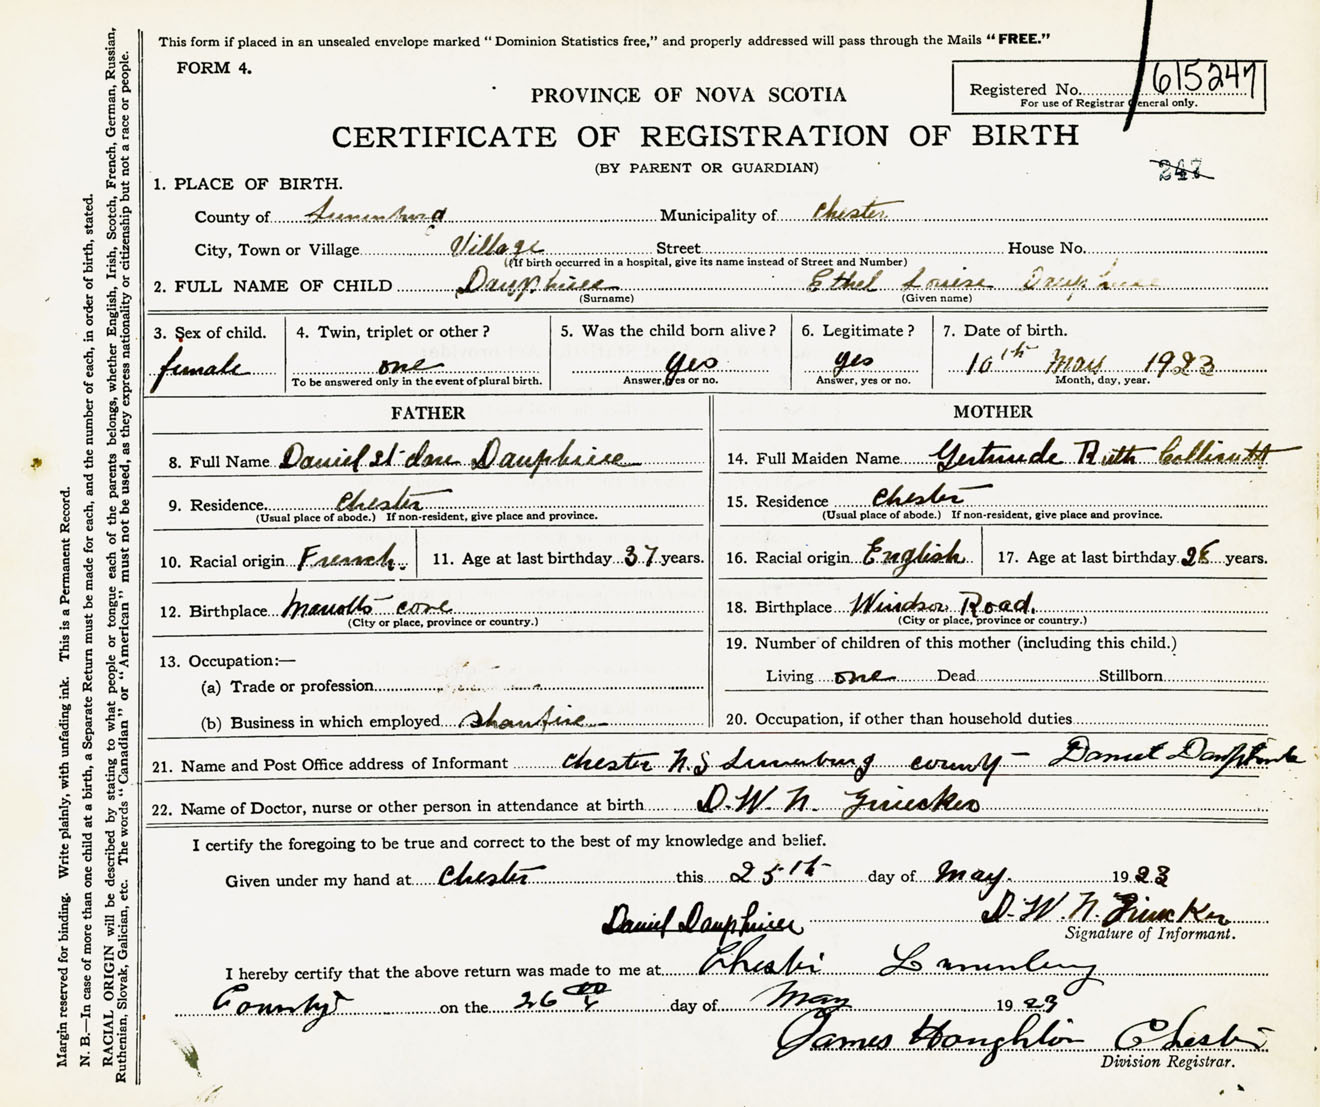 This form if placed in an unsealed envelope marked "Dominion Statistics free," and properly addressed will pass through the Mails "FREE."
FORM 4.
Registered No. 615247
For use of Registrar General only.
PROVINCE OF NOVA SCOTIA
CERTIFICATE OF REGISTRATION OF BIRTH
(BY PARENT OR GUARDIAN)
247
1. PLACE OF BIRTH.
County of Lunenburg Municipality of Chester
City, Town or Village Village Street House No.
(If birth occurred in a hospital, give its name instead of Street and Number)
2. FULL NAME OF CHILD Dauphinee Ethel Louise Dauphinee
(Surname) (Given name)
3. Sex of child. 4. Twin, triplet or other? 5. Was the child born alive? 6. Legitimate? 7. Date of birth.
female one yes yes 10th May 1923
To be answered only in the event of plural birth. Answer, yes or no. Answer, yes or no. Month, day, year.
FATHER MOTHER
8. Full Name Daniel St Dauphinee 14. Full Maiden Name Gertrude Ruth
9. Residence Chester 15. Residence Chester
(Usual place of abode.) If non-resident, give place and province. (Usual place of abode.) If non-resident, give place and province.
10. Racial origin French 11. Age at last birthday 37 years. 16. Racial origin English 17. Age at last birthday 28 years.
12. Birthplace Marriotts cove 18. Birthplace Windsor Road.
(City or place, province or country.) (City or place, province or country.)
19. Number of children of this mother (including this child.)
13. Occupation:—
(a) Trade or profession Living one Dead Stillborn
(b) Business in which employed 20. Occupation, if other than household duties
21. Name and Post Office address of Informant Chester N.S Lunenburg county - Daniel Dauphinee
22. Name of Doctor, nurse or other person in attendance at birth D. W. N.
I certify the foregoing to be true and correct to the best of my knowledge and belief.
Given under my hand at Chester this 25th day of May. 1923
Daniel Dauphinee D. W. N.
Signature of Informant.
I hereby certify that the above return was made to me at Chester Lunenburg
County on the 26 day of May 1923
James Houghton Chester
Division Registrar.
Margin reserved for binding. Write plainly, with unfading ink. This is a Permanent Record.
N. B.—In case of more than one child at a birth, a Separate Return must be made for each, and the number of each, in order of birth, stated.
RACIAL ORIGIN will be described by stating to what people or tongue each of the parents belongs, whether English, Irish, Scotch, French, German, Russian,
Ruthenian, Slovak, Galician, etc. The words "Canadian" or "American" must not be used, as they express nationality or citizenship but not a race or people.